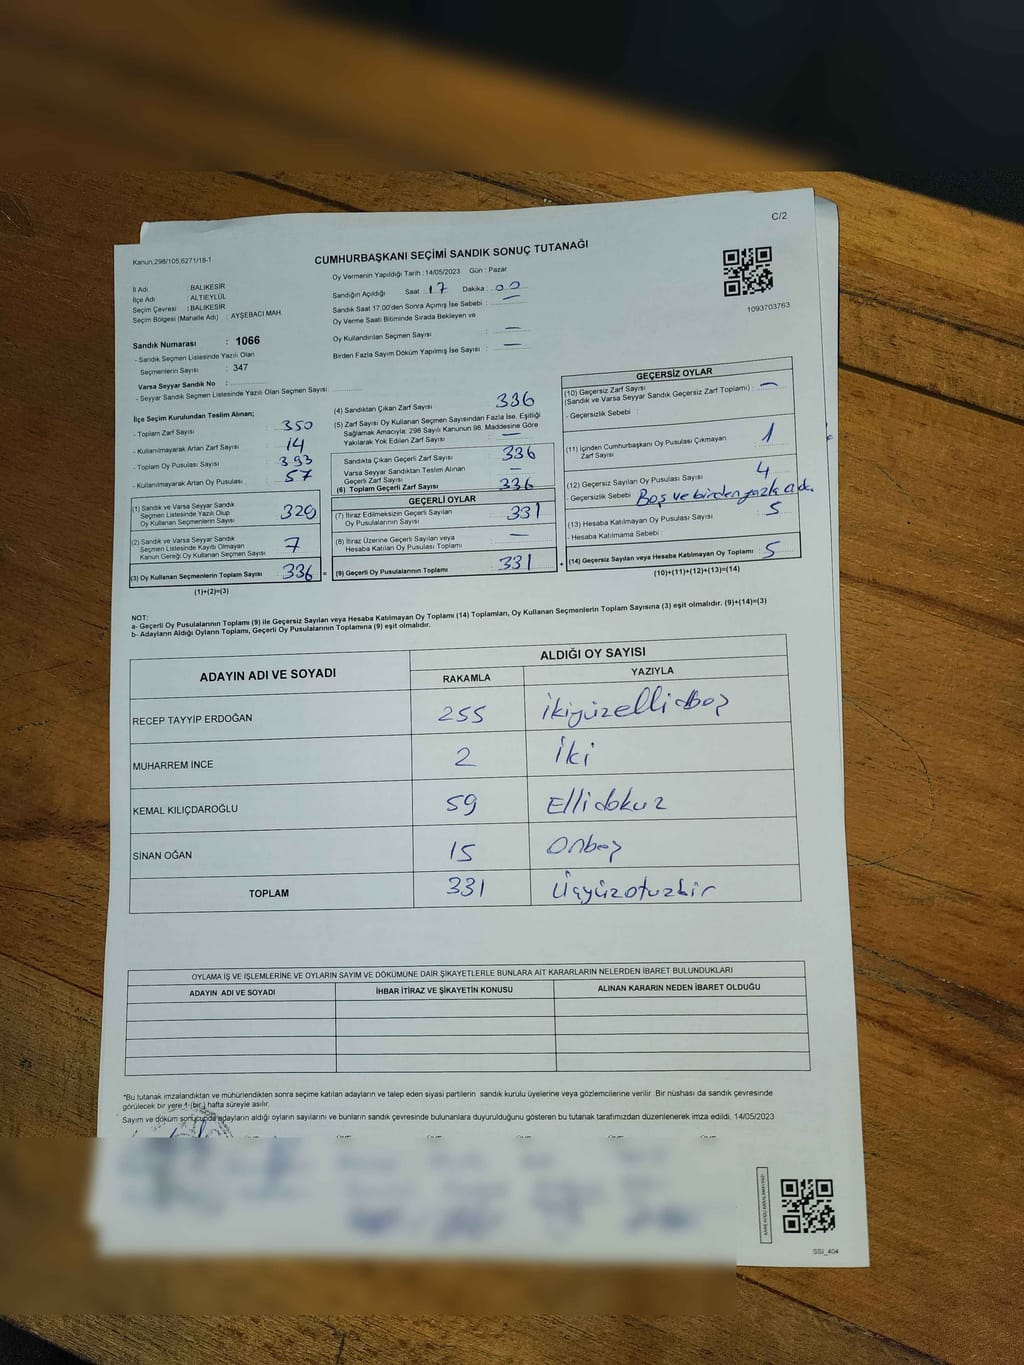 C/2
Kanun:298/105;6271/18-1
CUMHURBAŞKANI SEÇİMİ SANDIK SONUÇ TUTANAĞI
1093703763
İl Adı : BALIKESİR
İlçe Adı : ALTIEYLÜL
Seçim Çevresi : BALIKESİR
Seçim Bölgesi (Mahalle Adı) : AYŞEBACI MAH
Sandık Numarası : 1066
- Sandık Seçmen Listesinde Yazılı Olan
Seçmenlerin Sayısı : 347
Varsa Seyyar Sandık No :
- Seyyar Sandık Seçmen Listesinde Yazılı Olan Seçmen Sayısı:
Oy Vermenin Yapıldığı Tarih : 14/05/2023 Gün : Pazar
Sandığın Açıldığı Saat : 17 Dakika : 00
Sandık Saat 17:00'den Sonra Açımış İse Sebebi : —
Oy Verme Saati Bitiminde Sırada Bekleyen ve
Oy Kullandırılan Seçmen Sayısı : —
Birden Fazla Sayım Döküm Yapılmış İse Sayısı : —
İlçe Seçim Kurulundan Teslim Alınan;
- Toplam Zarf Sayısı : 350
- Kullanılmayarak Artan Zarf Sayısı : 14
- Toplam Oy Pusulası Sayısı : 393
- Kullanılmayarak Artan Oy Pusulası : 57
(1) Sandık ve Varsa Seyyar Sandık
Seçmen Listesinde Yazılı Olup
Oy Kullanan Seçmenlerin Sayısı 329
(2) Sandık ve Varsa Seyyar Sandık
Seçmen Listesinde Kayıtlı Olmayan
Kanun Gereği Oy Kullanan Seçmen Sayısı 7
(3) Oy Kullanan Seçmenlerin Toplam Sayısı 336
(1)+(2)=(3)
(4) Sandıktan Çıkan Zarf Sayısı 336
(5) Zarf Sayısı Oy Kullanan Seçmen Sayısından Fazla İse, Eşitliği
Sağlamak Amacıyla; 298 Sayılı Kanunun 98. Maddesine Göre
Yakılarak Yok Edilen Zarf Sayısı : —
Sandıkta Çıkan Geçerli Zarf Sayısı 336
Varsa Seyyar Sandıktan Teslim Alınan
Geçerli Zarf Sayısı —
(6) Toplam Geçerli Zarf Sayısı 336
GEÇERLİ OYLAR
(7) İtiraz Edilmeksizin Geçerli Sayılan
Oy Pusulalarının Sayısı 331
(8) İtiraz Üzerine Geçerli Sayılan veya
Hesaba Katılan Oy Pusulası Toplamı —
= (9) Geçerli Oy Pusulalarının Toplamı 331
GEÇERSİZ OYLAR
(10) Geçersiz Zarf Sayısı
(Sandık ve Varsa Seyyar Sandık Geçersiz Zarf Toplamı) : —
- Geçersizlik Sebebi :
(11) İçinden Cumhurbaşkanı Oy Pusulası Çıkmayan
Zarf Sayısı : 1
(12) Geçersiz Sayılan Oy Pusulası Sayısı : 4
- Geçersizlik Sebebi : Boş ve birden fazla
(13) Hesaba Katılmayan Oy Pusulası Sayısı : 5
- Hesaba Katılmama Sebebi :
+ (14) Geçersiz Sayılan veya Hesaba Katılmayan Oy Toplamı : 5
(10)+(11)+(12)+(13)=(14)
NOT:
a- Geçerli Oy Pusulalarının Toplamı (9) ile Geçersiz Sayılan veya Hesaba Katılmayan Oy Toplamı (14) Toplamları, Oy Kullanan Seçmenlerin Toplam Sayısına (3) eşit olmalıdır. (9)+(14)=(3)
b- Adayların Aldığı Oyların Toplamı, Geçerli Oy Pusulalarının Toplamına (9) eşit olmalıdır.
ADAYIN ADI VE SOYADI
ALDIĞI OY SAYISI
RAKAMLA YAZIYLA
RECEP TAYYİP ERDOĞAN 255 ikiyüzellibeş
MUHARREM İNCE 2 İki
KEMAL KILIÇDAROĞLU 59 Ellidokuz
SİNAN OĞAN 15 Onbeş
TOPLAM 331 Üçyüzotuzbir
OYLAMA İŞ VE İŞLEMLERİNE VE OYLARIN SAYIM VE DÖKÜMÜNE DAİR ŞİKAYETLERLE BUNLARA AİT KARARLARIN NELERDEN İBARET BULUNDUKLARI
ADAYIN ADI VE SOYADI İHBAR İTİRAZ VE ŞİKAYETİN KONUSU ALINAN KARARIN NEDEN İBARET OLDUĞU
*Bu tutanak imzalandıktan ve mühürlendikten sonra seçime katılan adayların ve talep eden siyasi partilerin sandık kurulu üyelerine veya gözlemcilerine verilir. Bir nüshası da sandık çevresinde
görülecek bir yere 1 (bir) hafta süreyle asılır.
Sayım ve döküm sonucunda adayların aldığı oyların sayılarını ve bunların sandık çevresinde bulunanlara duyurulduğunu gösteren bu tutanak tarafımızdan düzenlenerek imza edildi. 14/05/2023
SSI_404